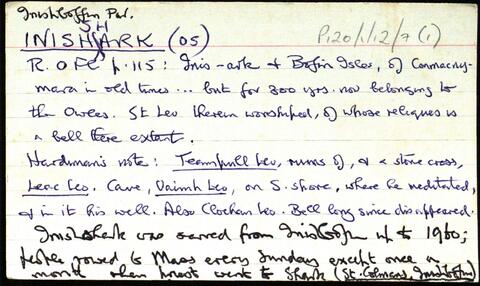 Inishboffin Par.
SH
INISHARK (05)
P120/1/12/7 (1)
R. O'FC p. 115: Inis-ark & Bofin Isles, of Conmacny-
mara in old times... but for 300 yrs. now belonging to
the Owles. St Leo therein worshiped, of whose reliques is
a bell there extant.
Hardiman's note: Teampull Leo, ruins of, & a stone cross,
Leac Leo. Cave, Uaimh Leo, on S. shore, where he meditated,
& in it his well. Also Clochan Leo. Bell long since disappeared.
Inishshark was served from Inisboffin up to 1960;
people rowed to Mass every Sunday except once a
month when priest went to Shark (St. Colman's, Inisboffin)